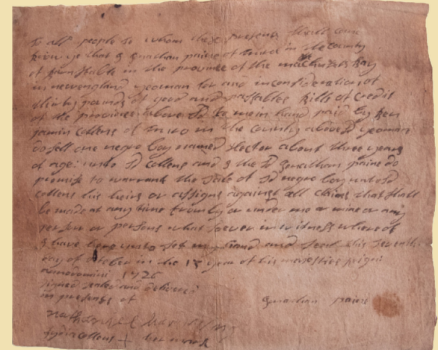 To all people to whom these presents shall come
Know ye that I Jonathan paine of truro in the County
of Barnstable in the province of the
in newengland yeoman for and in consideration of
fifty pounds of good and passable Bills of Credit
of the province above sd to me in hand paid by
of truro in the County above sd yeoman
sell one negro boy named Hector about three years
of age unto sd Collens and I the sd Jonathan paine do
promise to warrant the sale of sd negro boy unto sd
Collens his heirs or assigns against all claims that shall
be made at any time from by or under me or mine or any
person or persons what soever in witness whereof
I have hereunto set my hand and seal this seventh
day of october in the 13 year of his majesties reign
1726
signed sealed and delivered
in presents of
Jonathan paine